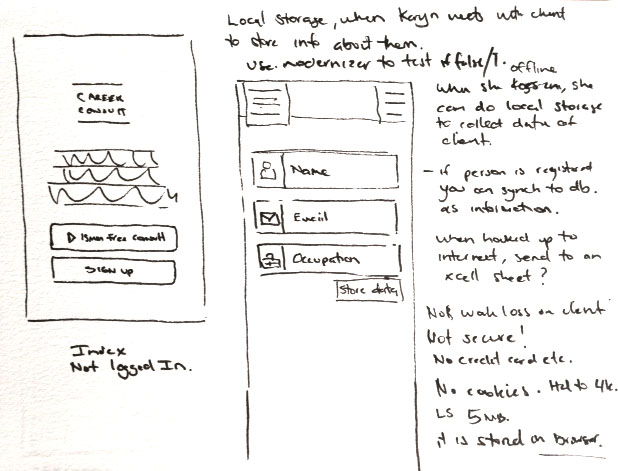 Local storage, when Karyn meets with client
to store info about them.
use modernizer to test if false/T.
CAREER
CONSULT
15min free consult
SIGN UP
Index
Not logged In.
Name
Email
Occupation
Store data
offline
when she she
can do local storage
to collect data of
client.
- if person is registered
you can synch to db.
as information.
when hooked up to
internet, send to an
xcell sheet?
loss on client
Not secure!
No credit card etc.
No cookies. to 4k.
LS 5MB.
it is stored on Browser.